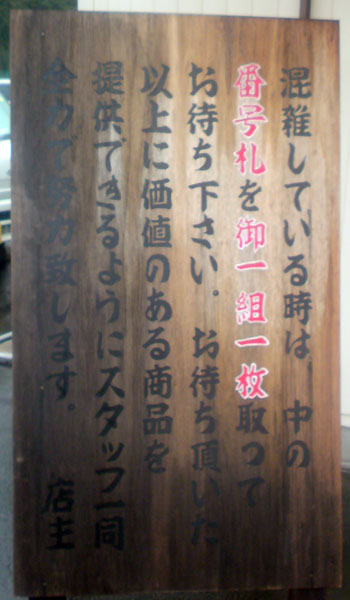 混雑している時は、中の
番号札を御一組一枚取って
お待ち下さい。お待ち頂いた
以上に価値のある商品を
提供できるようにスタッフ一同
全力で努力致します。
店主